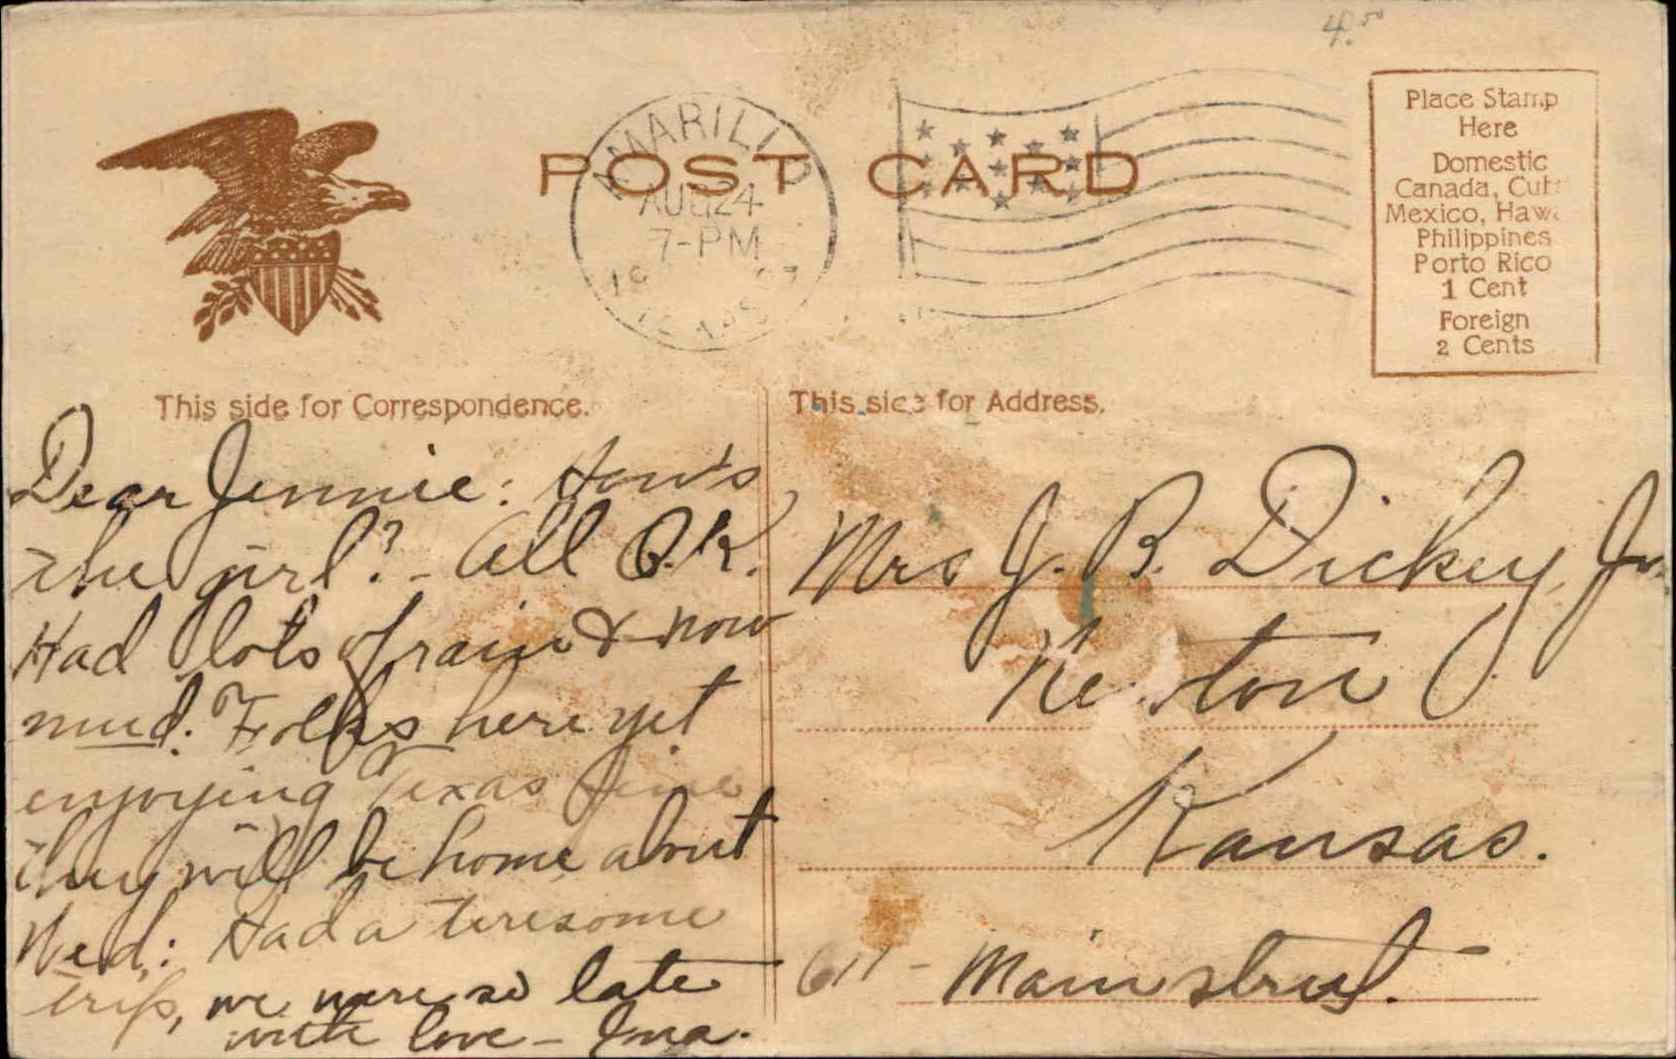 4.50
AMARILLO
AUG 24
7-PM
19 07
TEXAS
POST CARD
Place Stamp
Here
Domestic
Canada, Cuba
Mexico, Hawa
Philippines
Porto Rico
1 Cent
Foreign
2 Cents
This side for Correspondence.
This side for Address.
Dear Jennie: How's
the girl? - All O.K.
Had lots of rain & now
mud. Folks here yet
enjoying Texas fine
they will be home about
Wed: Had a teresome
trip, we were so late
with love - Ina.
Mrs J. B. Dickey, Jr.
Newton
Kansas.
611 - Main street.